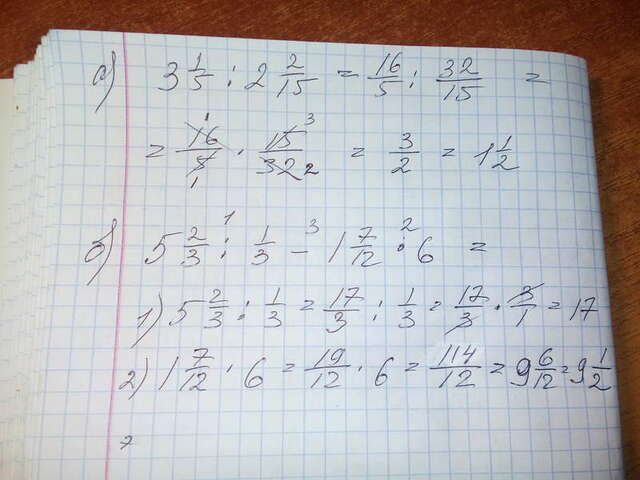 а) 3 1/5 : 2 2/15 = 16/5 : 32/15 =
= 16/5 · 15/32 = 3/2 = 1 1/2
б) 5 2/3 : 1/3 - 1 7/12 · 6 =
1) 5 2/3 : 1/3 = 17/3 : 1/3 = 17/3 · 3/1 = 17
2) 1 7/12 · 6 = 19/12 · 6 = 114/12 = 9 6/12 = 9 1/2